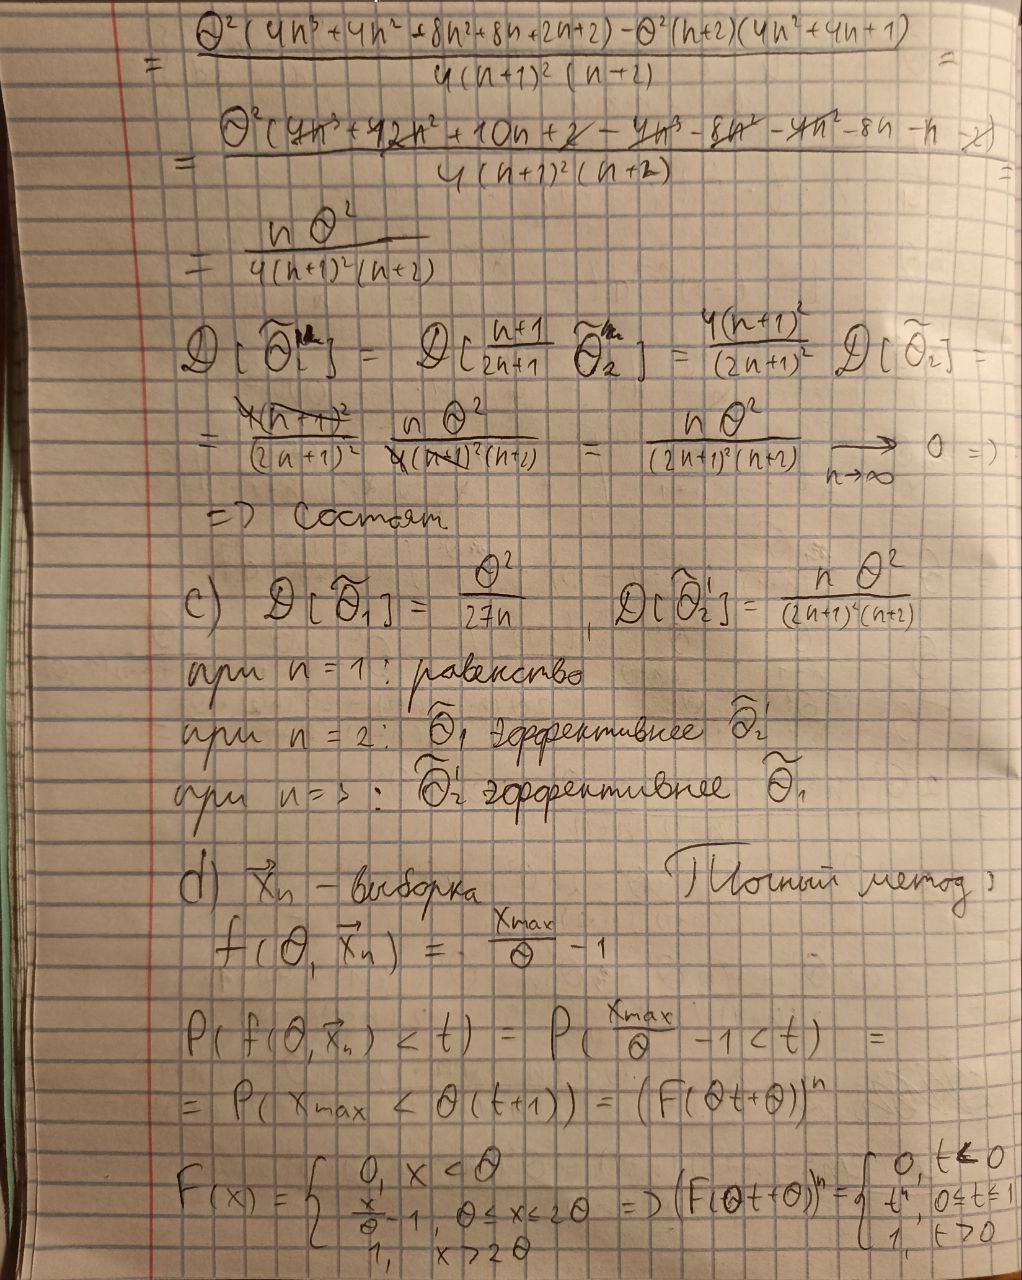 = θ²(4n³+4n²+8n²+8n+2n+2)-θ²(n+2)(4n²+4n+1) / 4(n+1)²(n+2) =
= θ²(4n³+12n²+10n+2-4n³-8n²-4n²-8n-n-2) / 4(n+1)²(n+2) =
= n θ² / 4(n+1)²(n+2)
D[θ̃₂'] = D[ n+1 / 2n+1 θ̃₂ ] = 4(n+1)² / (2n+1)² D[θ̃₂] =
= 4(n+1)² / (2n+1)² n θ² / 4(n+1)²(n+2) = n θ² / (2n+1)²(n+2) → n→∞ 0 =>
=> состоят
c) D[θ̃₁] = θ² / 27n , D[θ̃₂'] = n θ² / (2n+1)²(n+2)
при n = 1 : равенство
при n = 2 : θ̃₁ эффективнее θ̃₂'
при n = 3 : θ̃₂' эффективнее θ̃₁
d) x⃗n – выборка Точный метод:
f(θ, x⃗n) = xmax / θ - 1
P(f(θ, x⃗n) < t) = P( xmax / θ - 1 < t) =
= P(xmax < θ(t+1)) = (F(θt+θ))ⁿ
F(x) = { 0, x < θ ; x/θ - 1, θ ≤ x ≤ 2θ ; 1, x > 2θ => (F(θt+θ))ⁿ = { 0, t < 0 ; tⁿ, 0 ≤ t ≤ 1 ; 1, t > 0